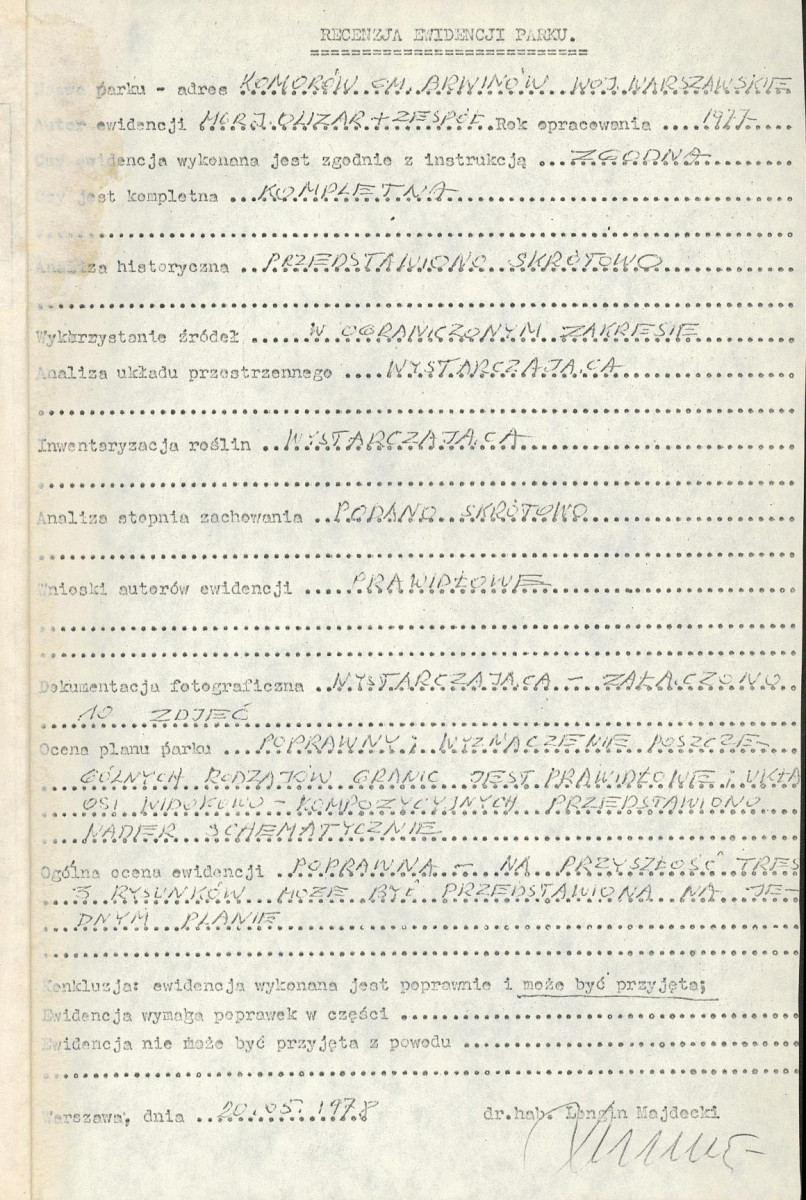 RECENZJA EWIDENCJI PARKU.
Nazwa parku - adres KOMORÓW GM. BRWINÓW WOJ. WARSZAWSKIE
Autor ewidencji MGR J. OLIZAR + ZESPÓŁ. Rok opracowania ....1977.....
Czy ewidencja wykonana jest zgodnie z instrukcją ... ZGODNA
Czy jest kompletna ... KOMPLETNA
Analiza historyczna .. PRZEDSTAWIONO SKRÓTOWO
Wykorzystanie źródeł ...... W OGRANICZONYM ZAKRESIE
Analiza układu przestrzennego .... WYSTARCZAJĄCA
Inwentaryzacja roślin .. WYSTARCZAJĄCA
Analiza stopnia zachowania .. PODANO SKRÓTOWO
Wnioski autorów ewidencji ..... PRAWIDŁOWE
Dokumentacja fotograficzna .. WYSTARCZAJĄCA - ZAŁĄCZONO
10 ZDJĘĆ
Ocena planu parku ... POPRAWNY; WYZNACZENIE POSZCZE-
GÓLNYCH RODZAJÓW GRANIC JEST PRAWIDŁOWE; UKŁA
OSI WIDOKOWO - KOMPOZYCYJNYCH PRZEDSTAWIONO
NADER SCHEMATYCZNIE
Ogólna ocena ewidencji . POPRAWNA - NA PRZYSZŁOŚĆ TREŚ
3 RYSUNKÓW MOŻE BYĆ PRZEDSTAWIONA NA JE-
DNYM PLANIE
Konkluzja: ewidencja wykonana jest poprawnie i może być przyjęta;
Ewidencja wymaga poprawek w części ..........
Ewidencja nie może być przyjęta z powodu ..........
Warszawa, dnia .. 20.05.1978
dr.hab. Longin Majdecki